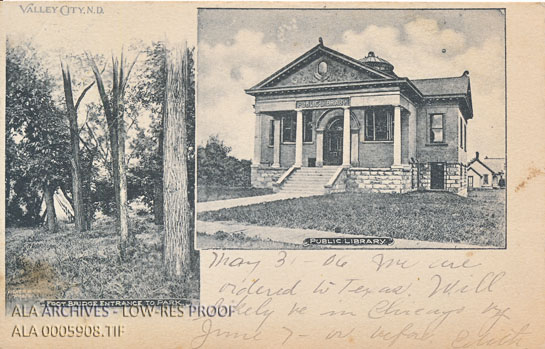 VALLEY CITY, N.D.
PUBLIC LIBRARY
PUBLIC LIBRARY
FOOT BRIDGE ENTRANCE TO PARK
May 31-06 We are
ordered to Texas. Will
likely be in Chicago by
June 7- or before
ALA ARCHIVES - LOW-RES PROOF
ALA 0005908.TIF